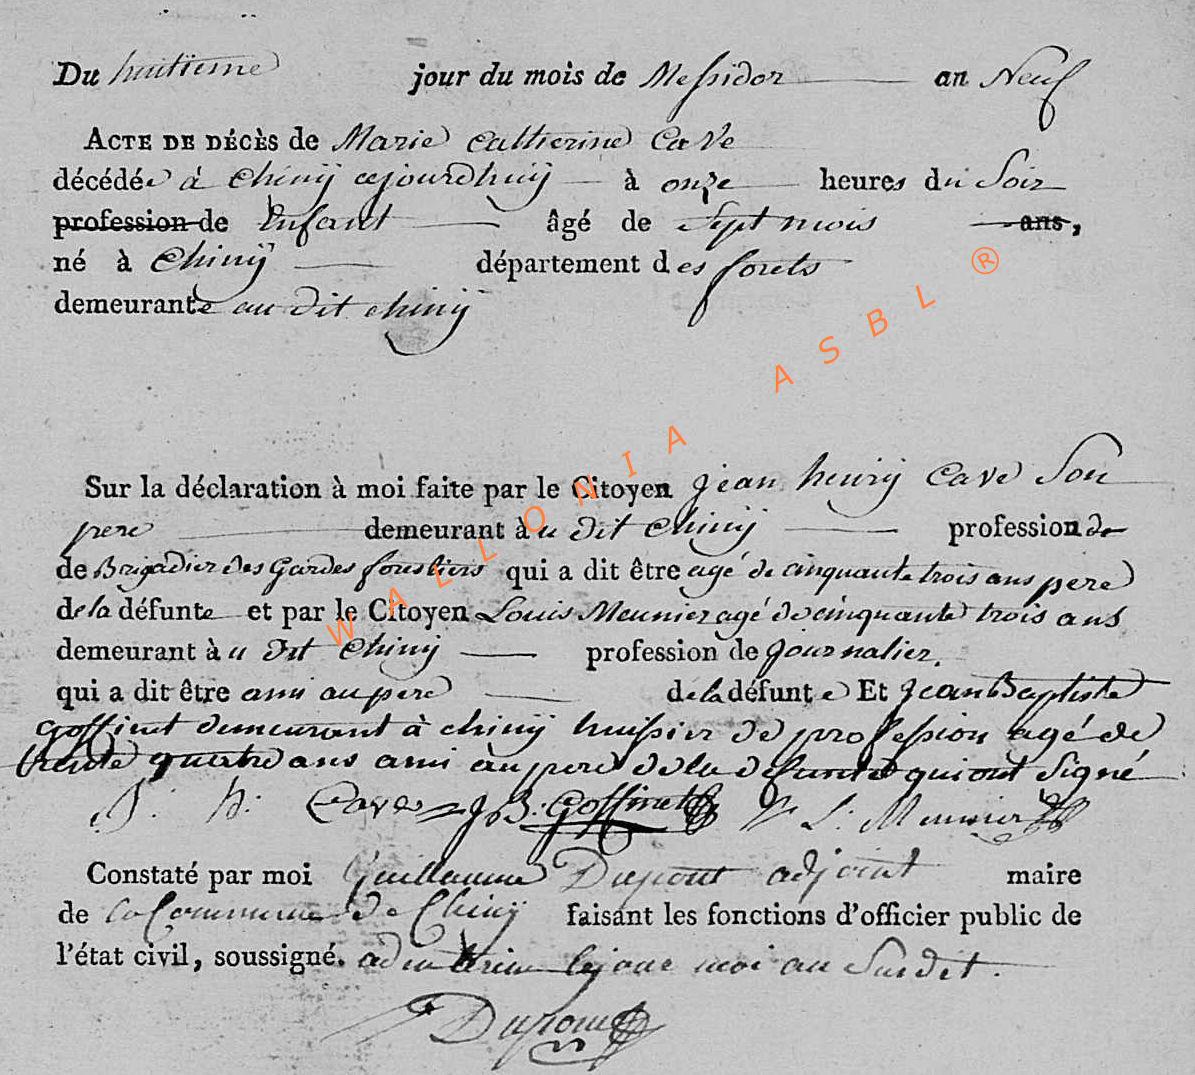 Du huitieme jour du mois de Messidor an Neuf
ACTE DE DÉCÈS de Marie Catherine Cave
décédée à Chiny cejourdhuy à onze heures du Soir
profession de Enfant âgé de Sept mois ans,
né à Chiny département des forets
demeurante au dit chiny
Sur la déclaration à moi faite par le Citoyen jean henry Cave Son
pere demeurant àu dit Chiny profession de
de Brigadier des Gardes forestiers qui a dit être agé de cinquante trois ans pere
de la défunte et par le Citoyen Louis Meunier agé de cinquante trois ans
demeurant àu dit Chiny profession de journalier.
qui a dit être ami au pere de la défunte Et Jean Baptiste
goffinet demeurant à chiny huissier de profession agé de
trente quatre ans ami au pere de la defunte qui ont Signé
J. h. Cave J B. Goffinet L. Meunier
Constaté par moi Guillaume Dupont adjoint maire
de la Commune de Chiny faisant les fonctions d'officier public de
l'état civil, soussigné. moi au Susdit.
Dupont
WALLONIA ASBL ®